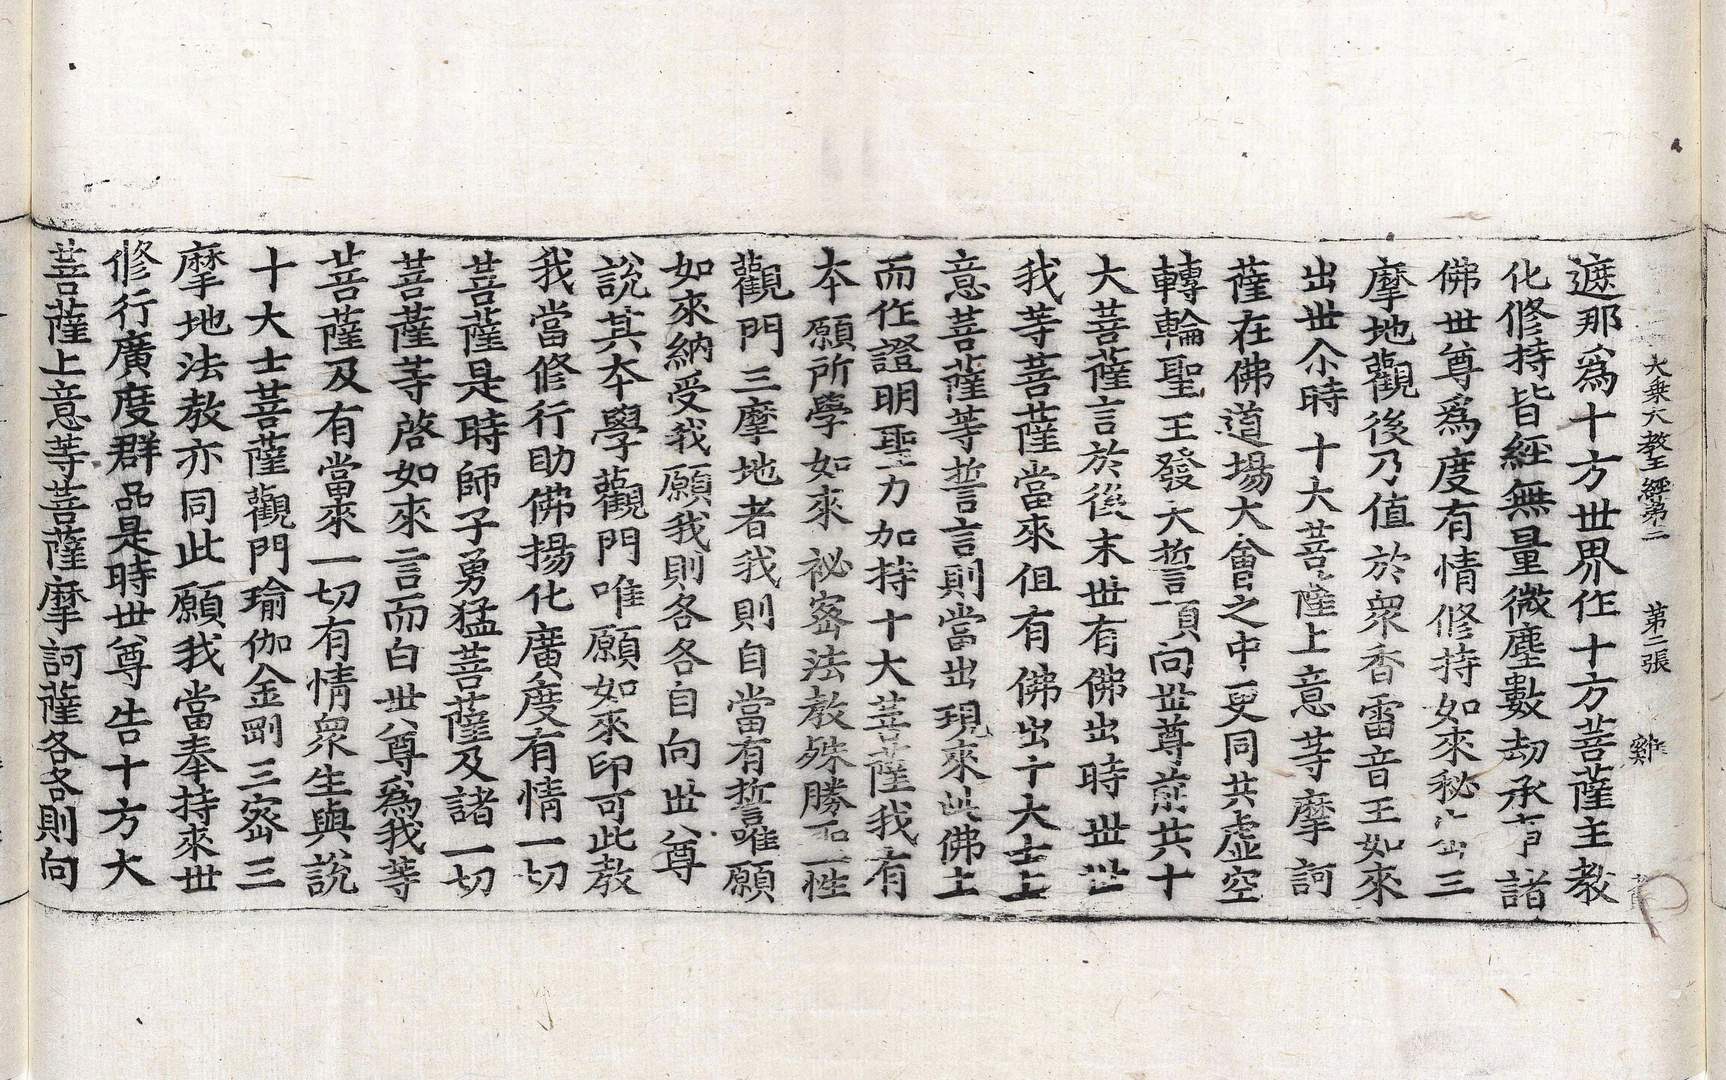 大乗大教王經第二　第二張　雞
遮那為十方世界作十方菩薩主教
化修持皆經無量微塵數劫承事諸
佛世尊爲度有情修持如來秘密三
摩地觀後乃值於衆香雷音王如來
出世尒時十大菩薩上意等摩訶
薩在佛道場大會之中更同共虛空
轉輪聖王發大誓願向世尊前共十
大菩薩言於後末世有佛出時世世
我等菩薩當來但有佛出十大士上
意菩薩等誓言則當出現來此佛土
而作證明聖力加持十大菩薩我有
本願所學如來祕密法教殊勝一性
觀門三摩地者我則自當有誓唯願
如來納受我願我則各各自向世尊
說其本學觀門唯願如來印可此教
我當修行助佛揚化廣度有情一切
菩薩是時師子勇猛菩薩及諸一切
菩薩等啓如來言而白世尊為我等
菩薩及有當來一切有情衆生與說
十大士菩薩觀門瑜伽金剛三密三
摩地法教亦同此願我當奉持來世
修行廣度群品是時世尊告十方大
菩薩上意等菩薩摩訶薩各各則向